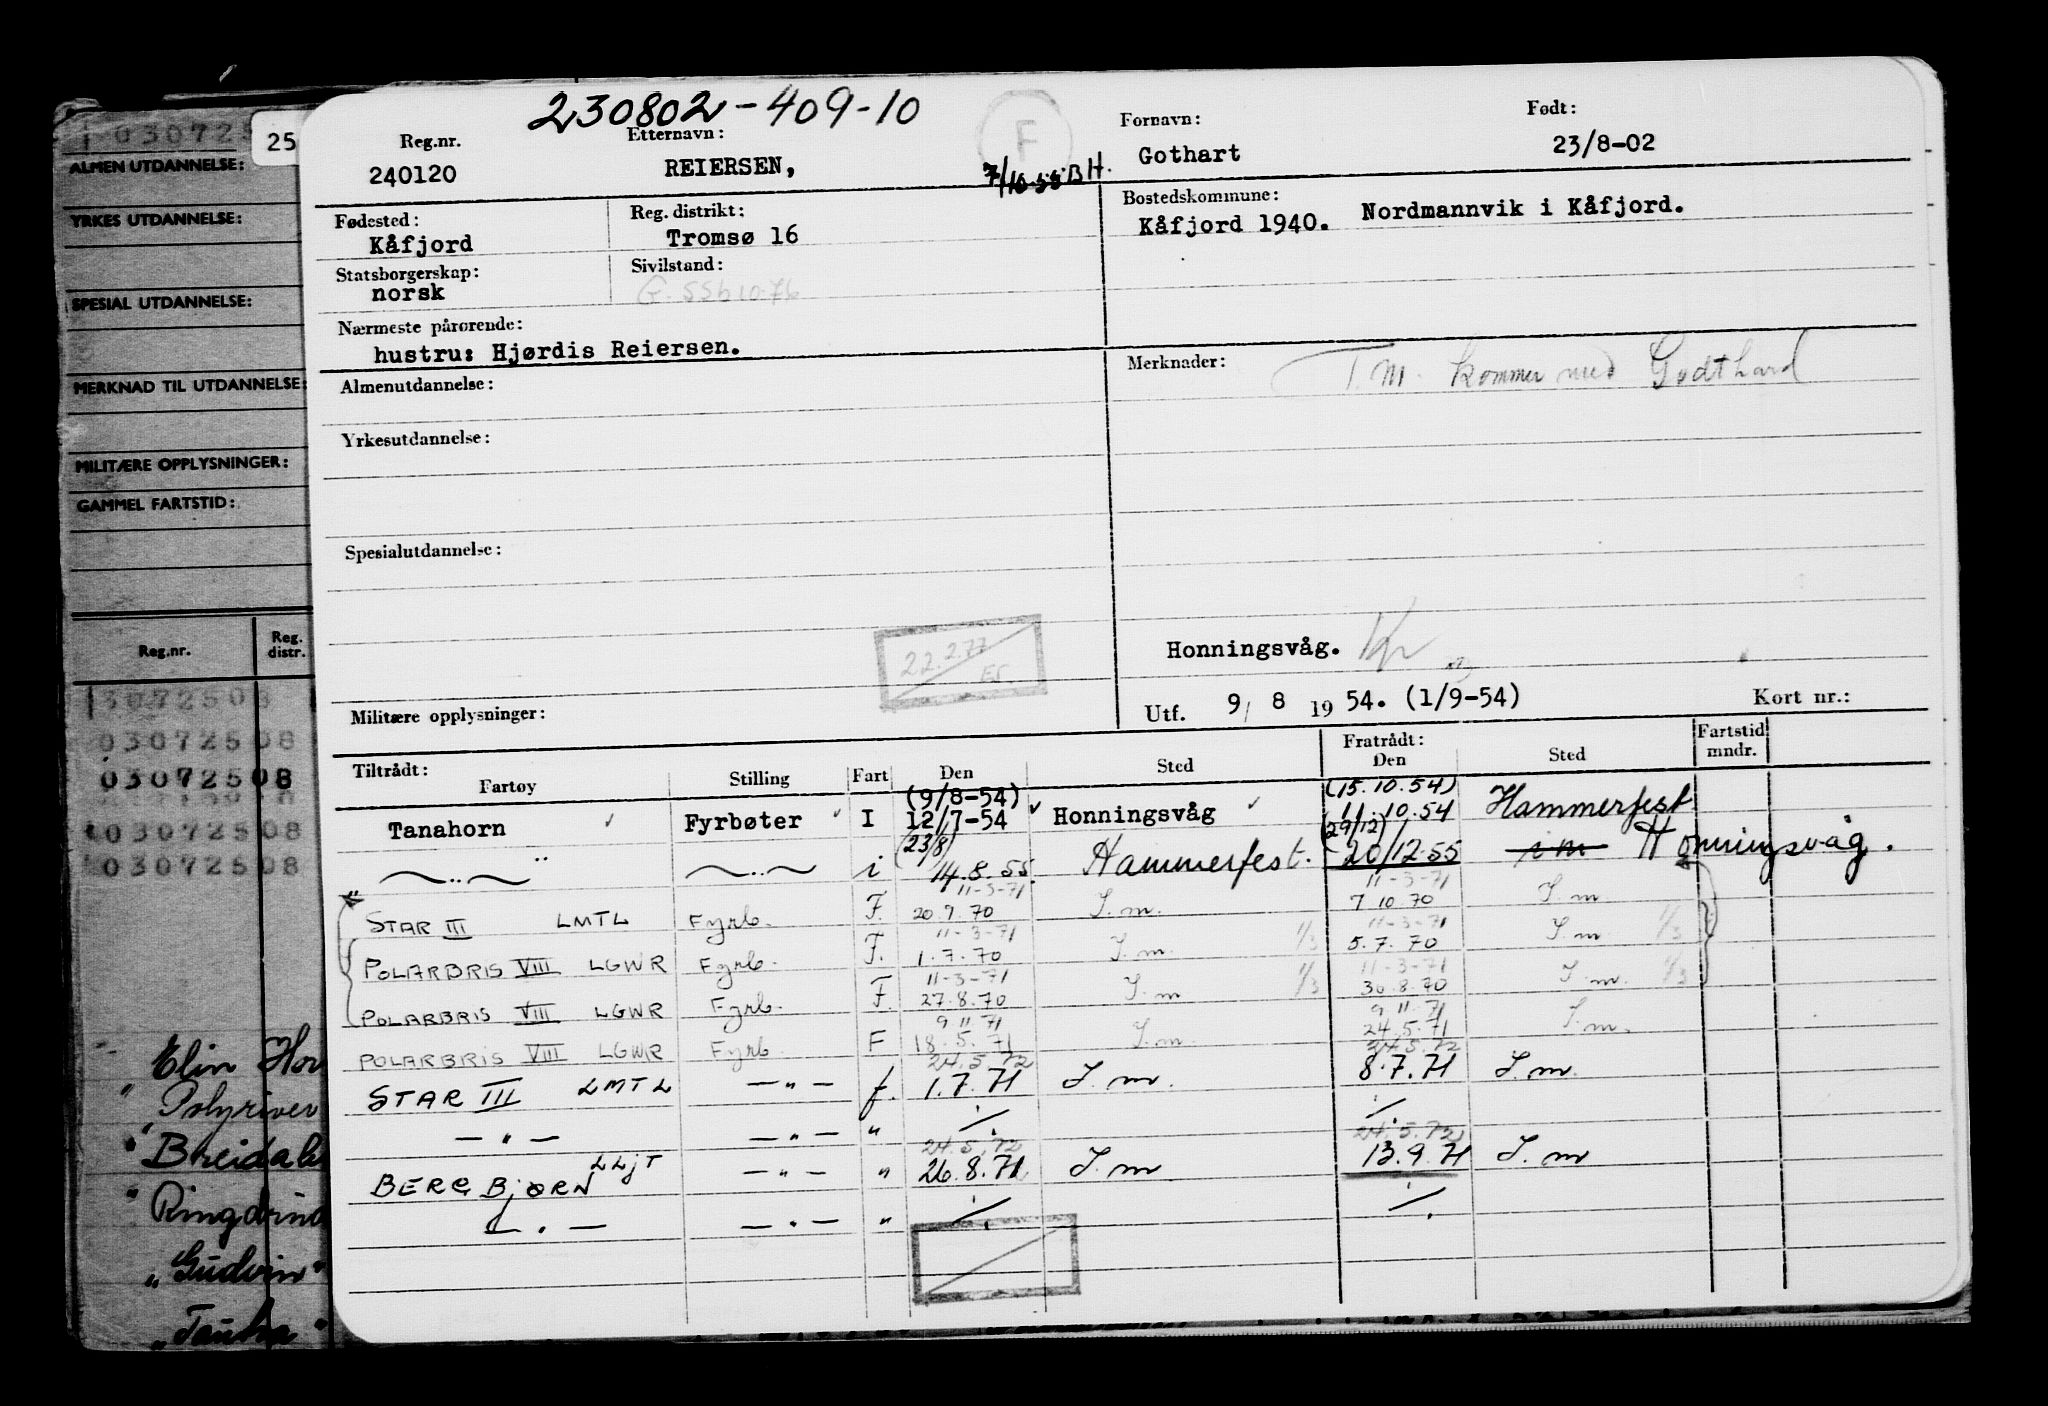 230802-409-10
Reg.nr. Etternavn: F Fornavn: Født:
240120 REIERSEN, 7/10-55 BH. Gothart 23/8-02
Fødested: Reg. distrikt: Bostedskommune:
Kåfjord Tromsø 16 Kåfjord 1940. Nordmannvik i Kåfjord.
Statsborgerskap: Sivilstand:
norsk G. SSB 10.76
Nærmeste pårørende:
hustru: Hjørdis Reiersen.
Almenutdannelse: Merknader: T.M. kommer med Godthard
Yrkesutdannelse:
Spesialutdannelse:
22.2.77
Honningsvåg.
Militære opplysninger: Utf. 9/ 8 19 54. (1/9-54) Kort nr.:
Tiltrådt: Fratrådt: Fartstid
Fartøy Stilling Fart Den Sted Den Sted mndr.
(9/8-54) (15.10.54)
Tanahorn Fyrbøter I 12/7-54 Honningsvåg 11.10.54 Hammerfest
(23/8) (29/12)
— " — — " — i 14.8.55. Hammerfest. 20/12-55 i m Honningsvåg.
11-3-71 11-3-71
STAR III LMTL Fyrb. F. 20.9.70 I.m. 7 10.70 I.m
11-3-71 11-3-71
POLARBRIS VIII LGWR Fyrb. F. 1.7.70 I.m 1/3 5.7.70 I.m 1/3
11-3-71 11-3-71
POLARBRIS VIII LGWR Fyrb. F. 27.8.70 I.m 1/3 30.8.70 I.m. 1/3
9 11.71 9 11.71
POLARBRIS VIII LGWR Fyrb. F 18.5.71 I.m. 24.5.71 I.m.
24.5.72 24.5.72
STAR III LMTL — " — f. 1.7.71 I.m. 8.7.71 I.m.
— " — — " — " ⁒ ⁒
24.5.72 24.5.72
BERG BJØRN LLJT — " — " 26.8.71 I.m 13.9.71 I.m
— " — — " — " ⁒ ⁒
25
030725
ALMEN UTDANNELSE:
YRKES UTDANNELSE:
SPESIAL UTDANNELSE:
MERKNAD TIL UTDANNELSE:
MILITÆRE OPPLYSNINGER:
GAMMEL FARTSTID:
Reg.nr. Reg. distr.
03072508
03072508
03072508
03072508
03072508
Elin Hor
" Polyriver
" Breidal
" Ringdrin
"Gudvin"